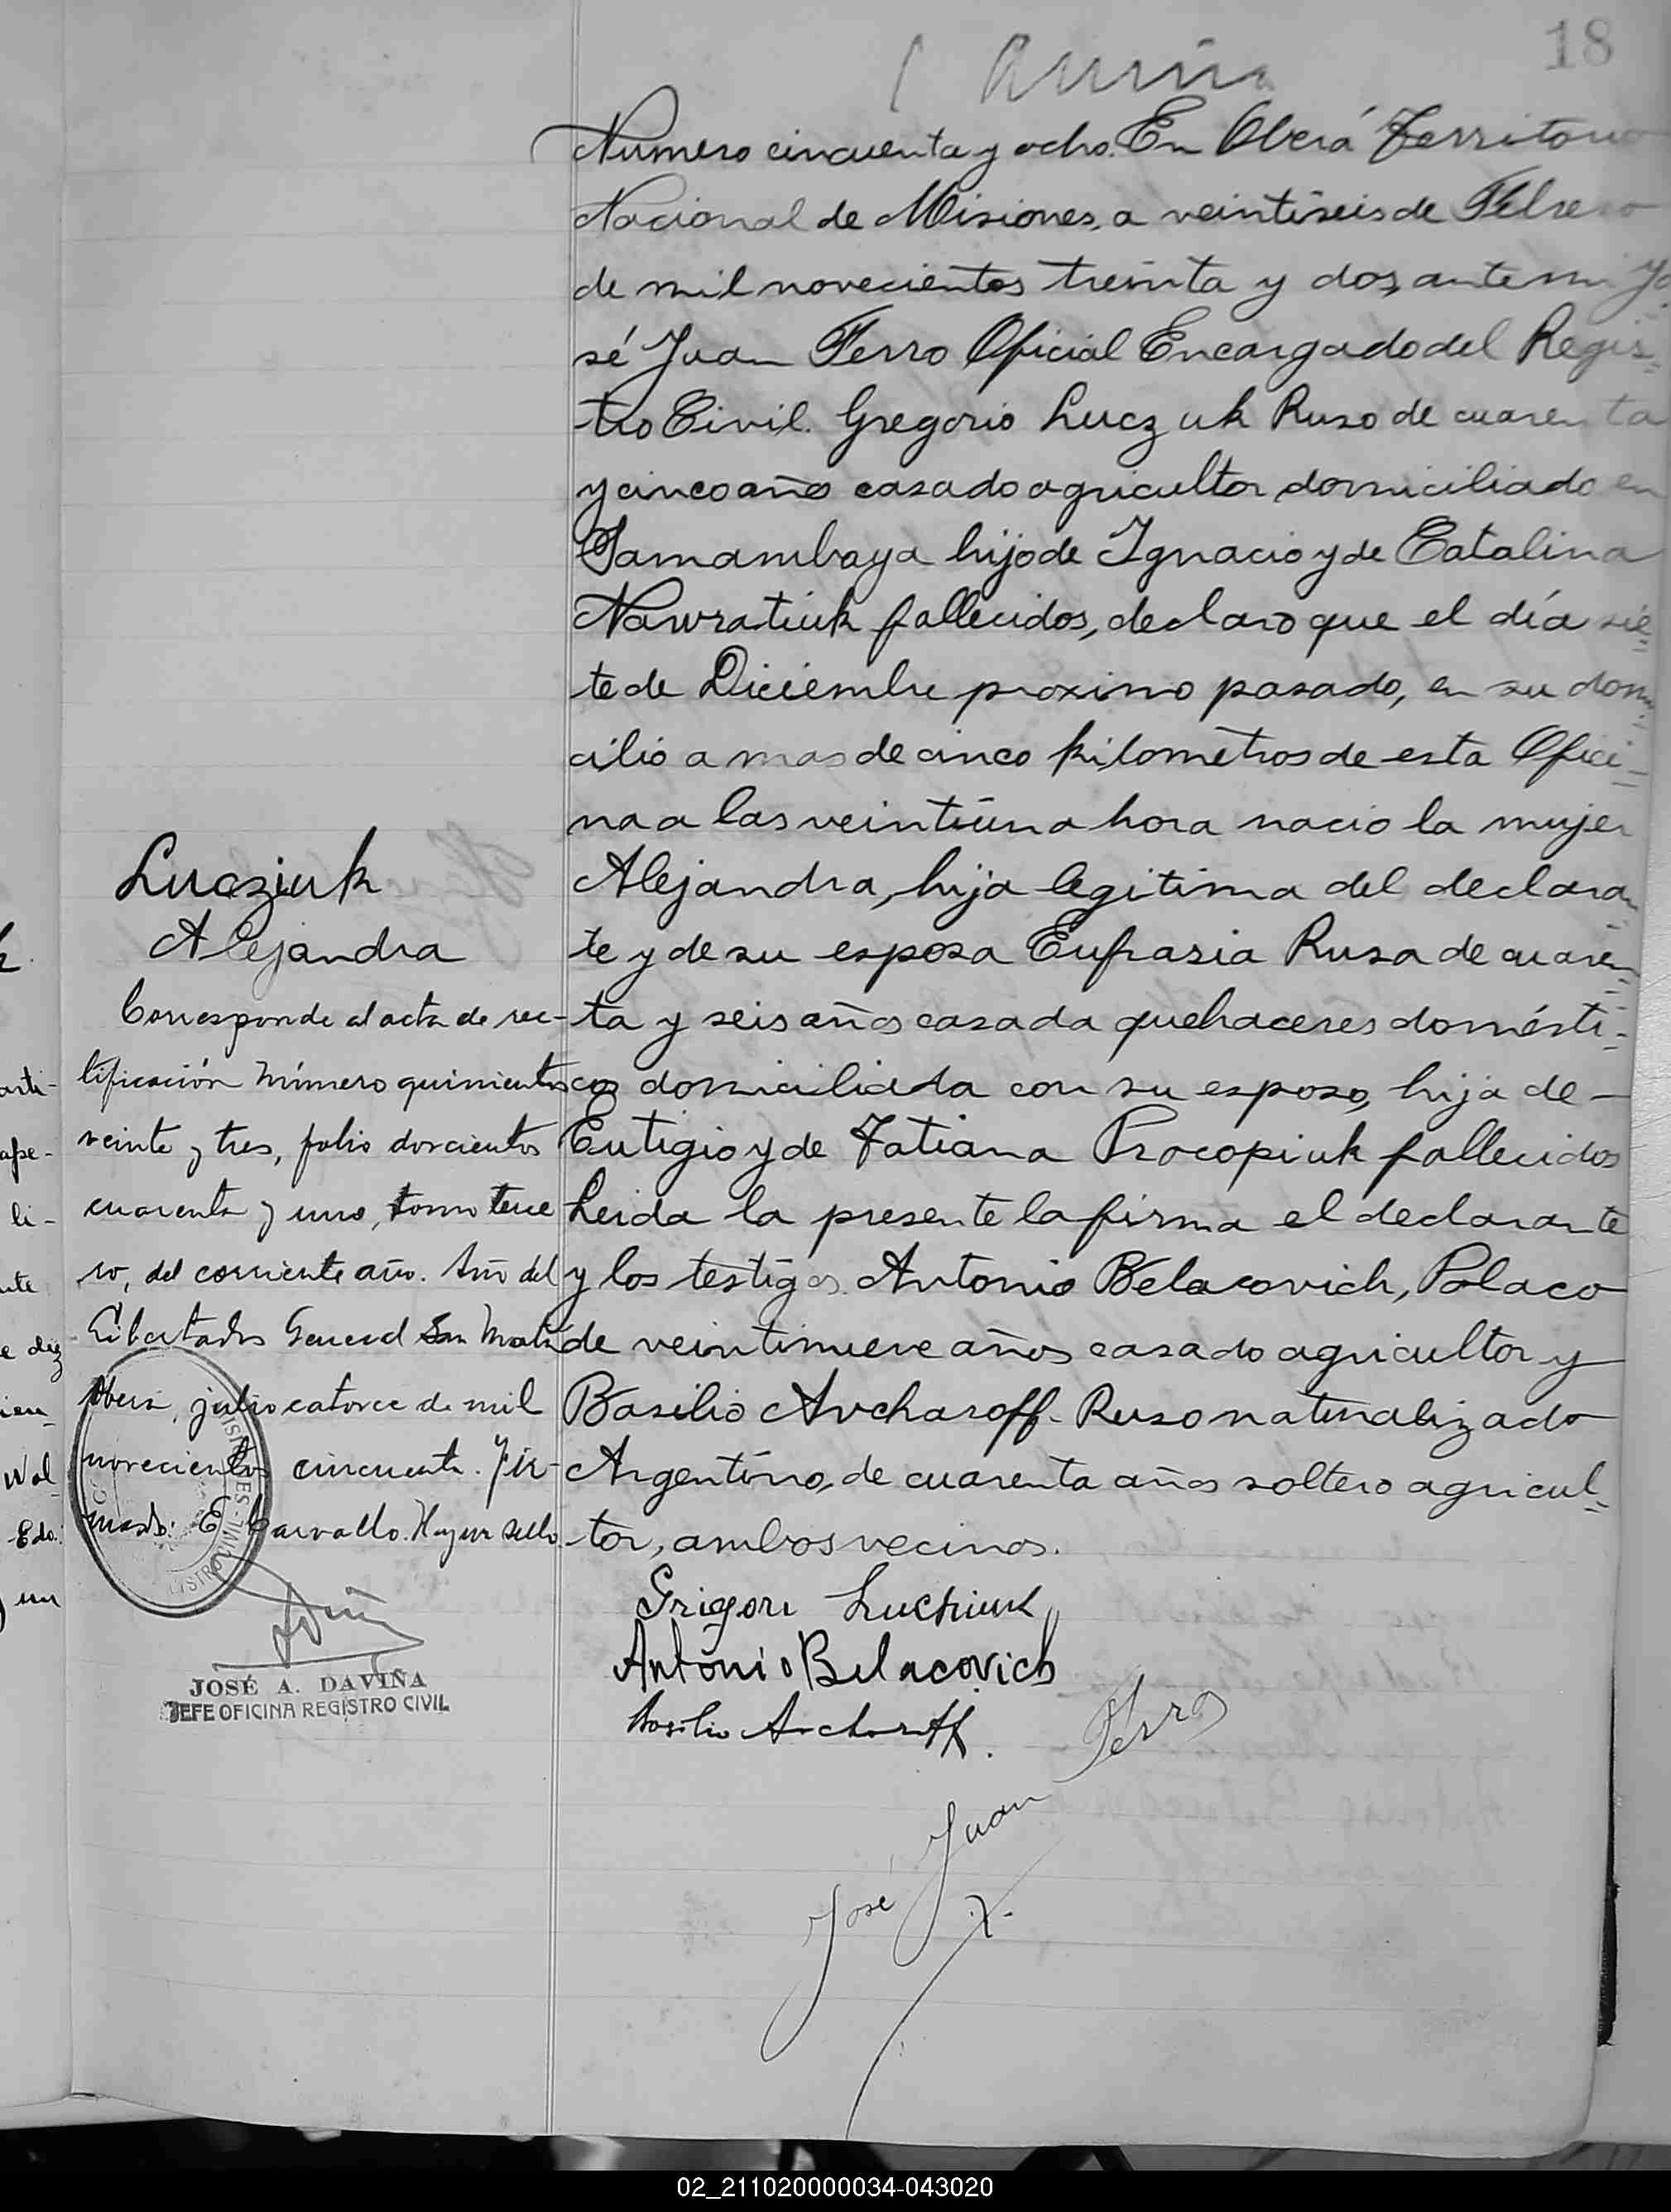 18
Numero cincuenta y ocho. En Oberá Territorio
Nacional de Misiones, a veintiseis de Febrero
de mil novecientos treinta y dos, ante mi Jo
sé Juan Ferro Oficial Encargado del Regis-
tro Civil. Gregorio Luczuk Ruso de cuarenta
y cinco año casado agricultor domiciliado en
Samambaya hijo de Ignacio y de Catalina
Nawratiuk fallecidos, declaro que el día sie-
te de Diciembre proximo pasado, en su domi-
cilio a mas de cinco kilometros de esta Ofici-
na a las veintiuna hora nacio la mujer
Alejandra, hija legitima del declaran-
te y de su esposa Eufrasia Rusa de cuaren-
ta y seis años casada quehaceres domésti-
cos domiciliada con su esposo, hija de —
Eutigio y de Tatiana Procopiuk fallecidos
Leida la presente la firma el declarante
y los testigos Antonio Belacovich, Polaco
de veintinueve años casado agricultor y
Basilio Avcharoff. Ruso naturalizado
Argentino, de cuarenta años soltero agricul-
tor, ambos vecinos.
Grigori Luchiuk
Antonio Belacovich
Basilio Avcharoff.
José Juan Ferro
Lucziuk
Alejandra
Corresponde al acta de rec-
tificación número quinientos
veinte y tres, folio doscientos
cuarenta y uno, tomo terce
ro, del corriente año. Año del
Libertador General San Martín
Oberá, julio catorce de mil
novecientos cincuenta. Fir-
mado: E. Carvallo. Hay un sello.
JOSÉ A. DAVIÑA
JEFE OFICINA REGISTRO CIVIL
02_211020000034-043020